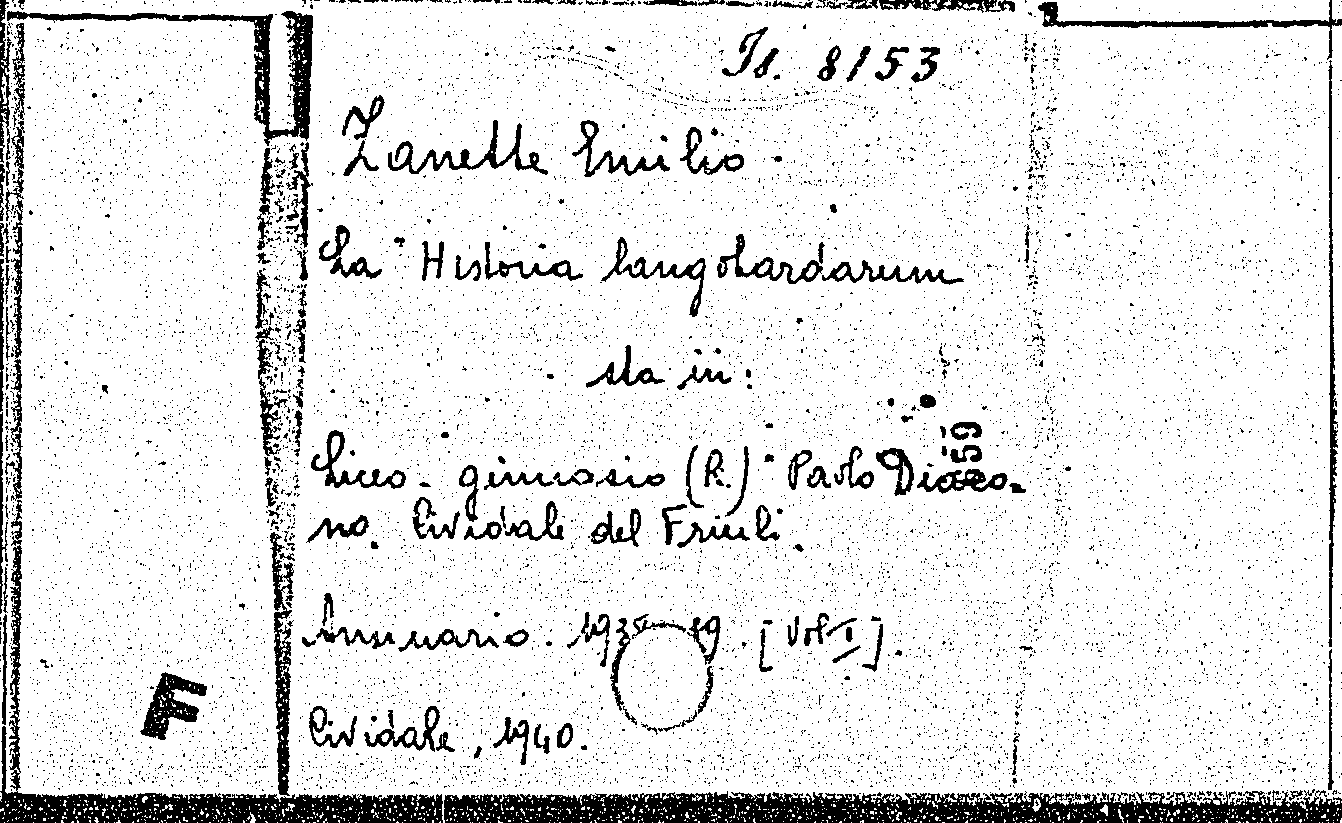 Is. 8153
Zanette Emilio.
La "Historia langobardarum
sta in:
Liceo-ginnasio (R.) "Paolo Diaco-
no. Cividale del Friuli.
859
Annuario. 19 [Vol I].
Cividale, 1940.
F